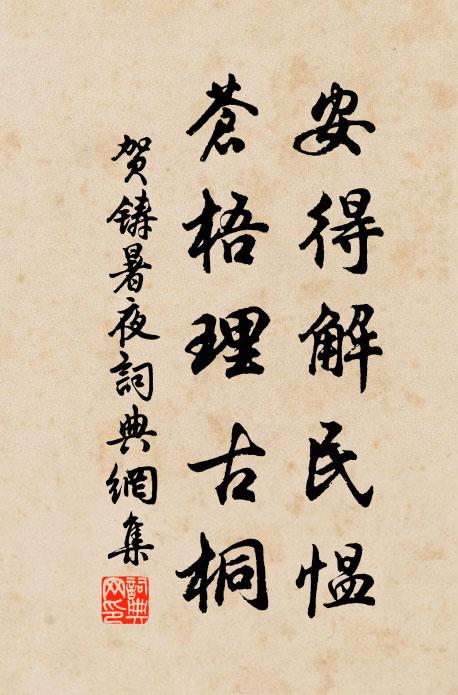 安得解民愠
蒼梧理古桐
贺鑄暑夜詞典網集
詞典網印